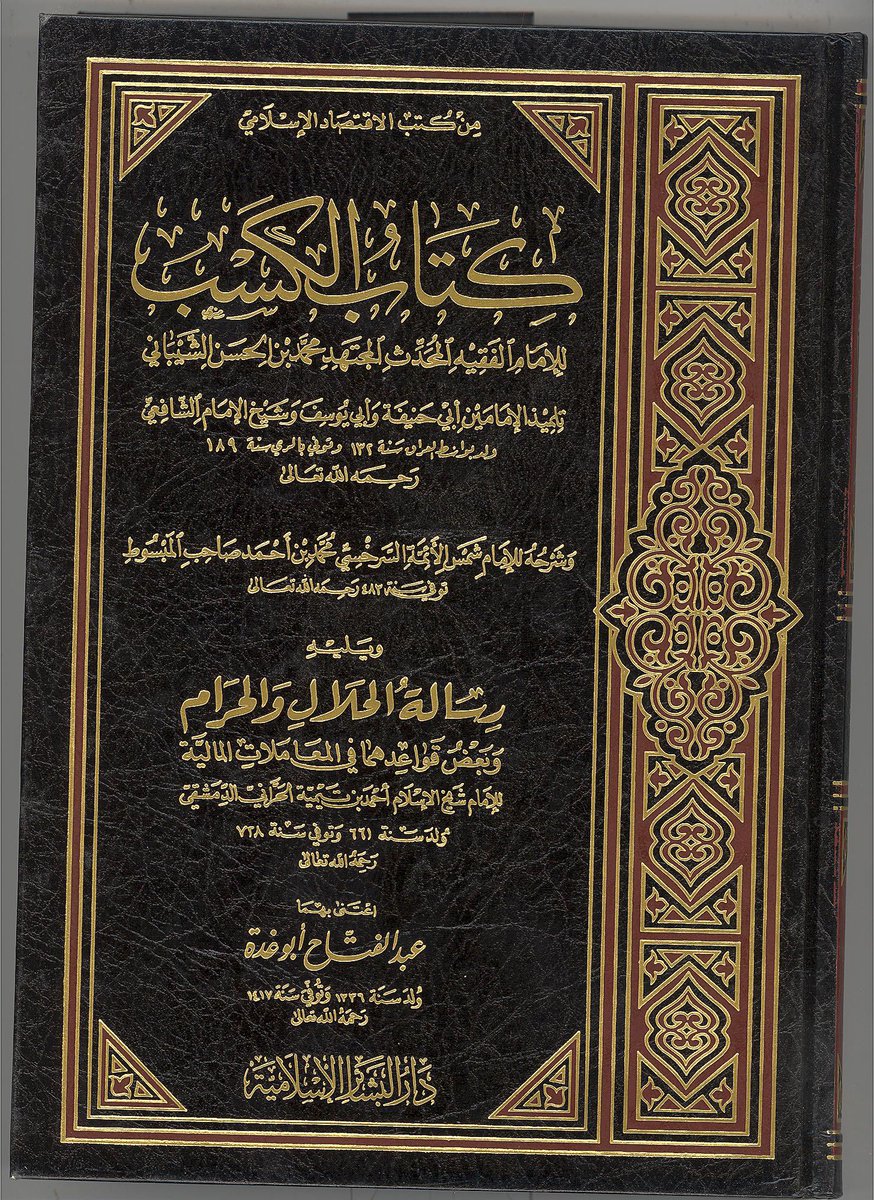 مِنْ كُتُبِ الاقتصَادِ الإِسْلَامِي
كِتَابُ الكَسْبِ
للإمَامِ الفَقِيهِ المُحَدِّثِ المُجتَهِدِ مُحَمَّد بْنِ الحَسَنِ الشَّيْبَانِي
تلميذ الإمَامَيْن أبي حَنيفَة وَأبي يُوسفَ وَشَيْخ الإمَام الشَّافِعِي
ولد بواسط العراق سَنة ١٣٢ وتوفي بالري سنة ١٨٩
رَحِمَه الله تعَالىٰ
وَشَرْحُه للإمَام شَمْسِ الأَئِمَّة السَّرخْسِيّ مُحَمَّد بْن أَحْمَد صَاحِبِ المَبْسُوط
توفي سَنة ٤٨٣ رَحِمَه الله تعَالىٰ
وَيَليْهِ
رِسَالَةُ الحَلَالِ وَالحَرَامِ
وَبَعْضُ قَوَاعِدِهِمَا في المعَامَلَاتِ المَاليَّة
للإمَام شَيْخ الإسْلَام أَحْمَد بن تَيْمِيَّة الحَرَّاني الدِّمَشْقي
وُلدَ سَنة ٦٦١ وَتوُفي سَنة ٧٢٨
رَحِمَهُ الله تعَالىٰ
اعْتَنىٰ بهِمَا
عبد الفتاح أبو غدة
وُلدَ سَنَة ١٣٣٦ وَتُوُفّيَ سَنَة ١٤١٧
رَحِمَهُ الله تعَالىٰ
دَارُ البَشَائِر الإِسْلَامِيَّة